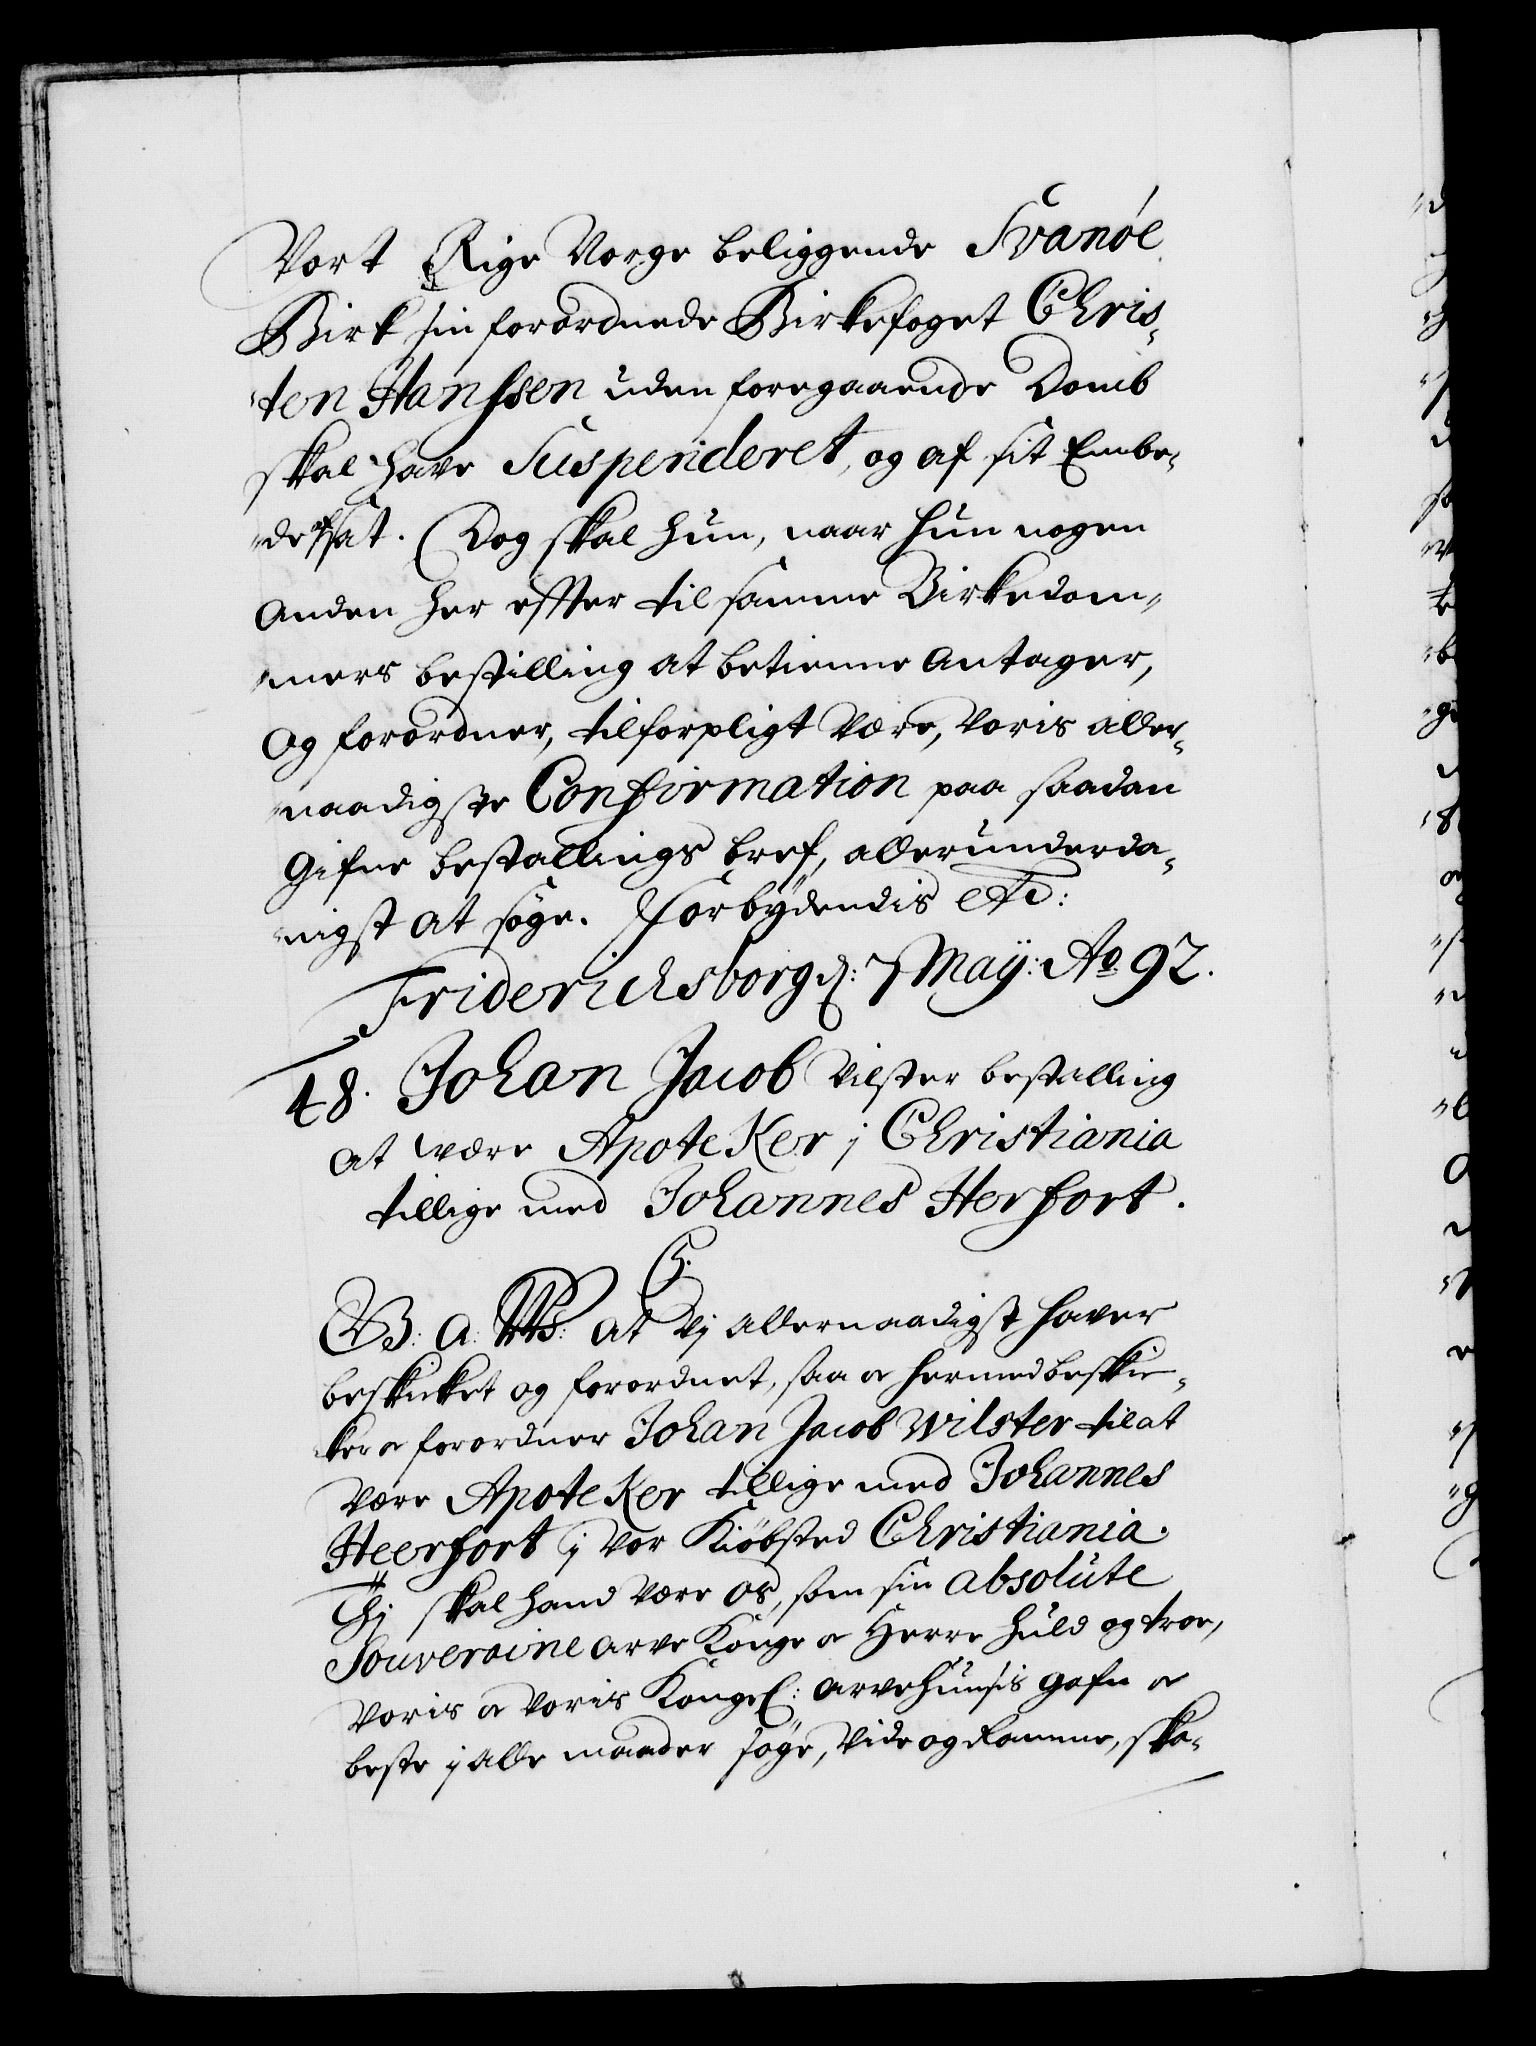 Vort Rige Norge beliggende Svanöe
Birk sin forordnede Birkefoget Chris-
ten Hanssen uden foregaaende Domb
skal have Suspenderet, og af sit Embe-
de afsat. Dog skal hun, naar hun nogen
anden her effter til samme Birkedom-
mers bestilling at betienne antager,
og forordner, tilforpligt være, Voris aller-
naadigste Confirmation paa saadan
gifne bestallings bref, allerunderda-
nigst at søge. Forbydendis etc:
Friderichsborg d: 7 May: Ao 92.
48. Johan Jacob Vilster bestalling
at være Apoteker i Christiania
tillige med Johannes Herfort.
C5.
G: A: W: at Vj allernaadigst hafver
beskicket og forordnet, saa o hermed beskic-
ker o forordner Johan Jacob Wilster til at
være Apoteker tillige med Johannes
Heerfort j vor Kiöbsted Christiania.
Thj skal hand være os, som sin absolute
Souveraine arve Konge o Herre huld og troe,
Voris o Voris Kongel: arvehuusis gafn o
beste j alle maader søge, vide og ramme, ska-